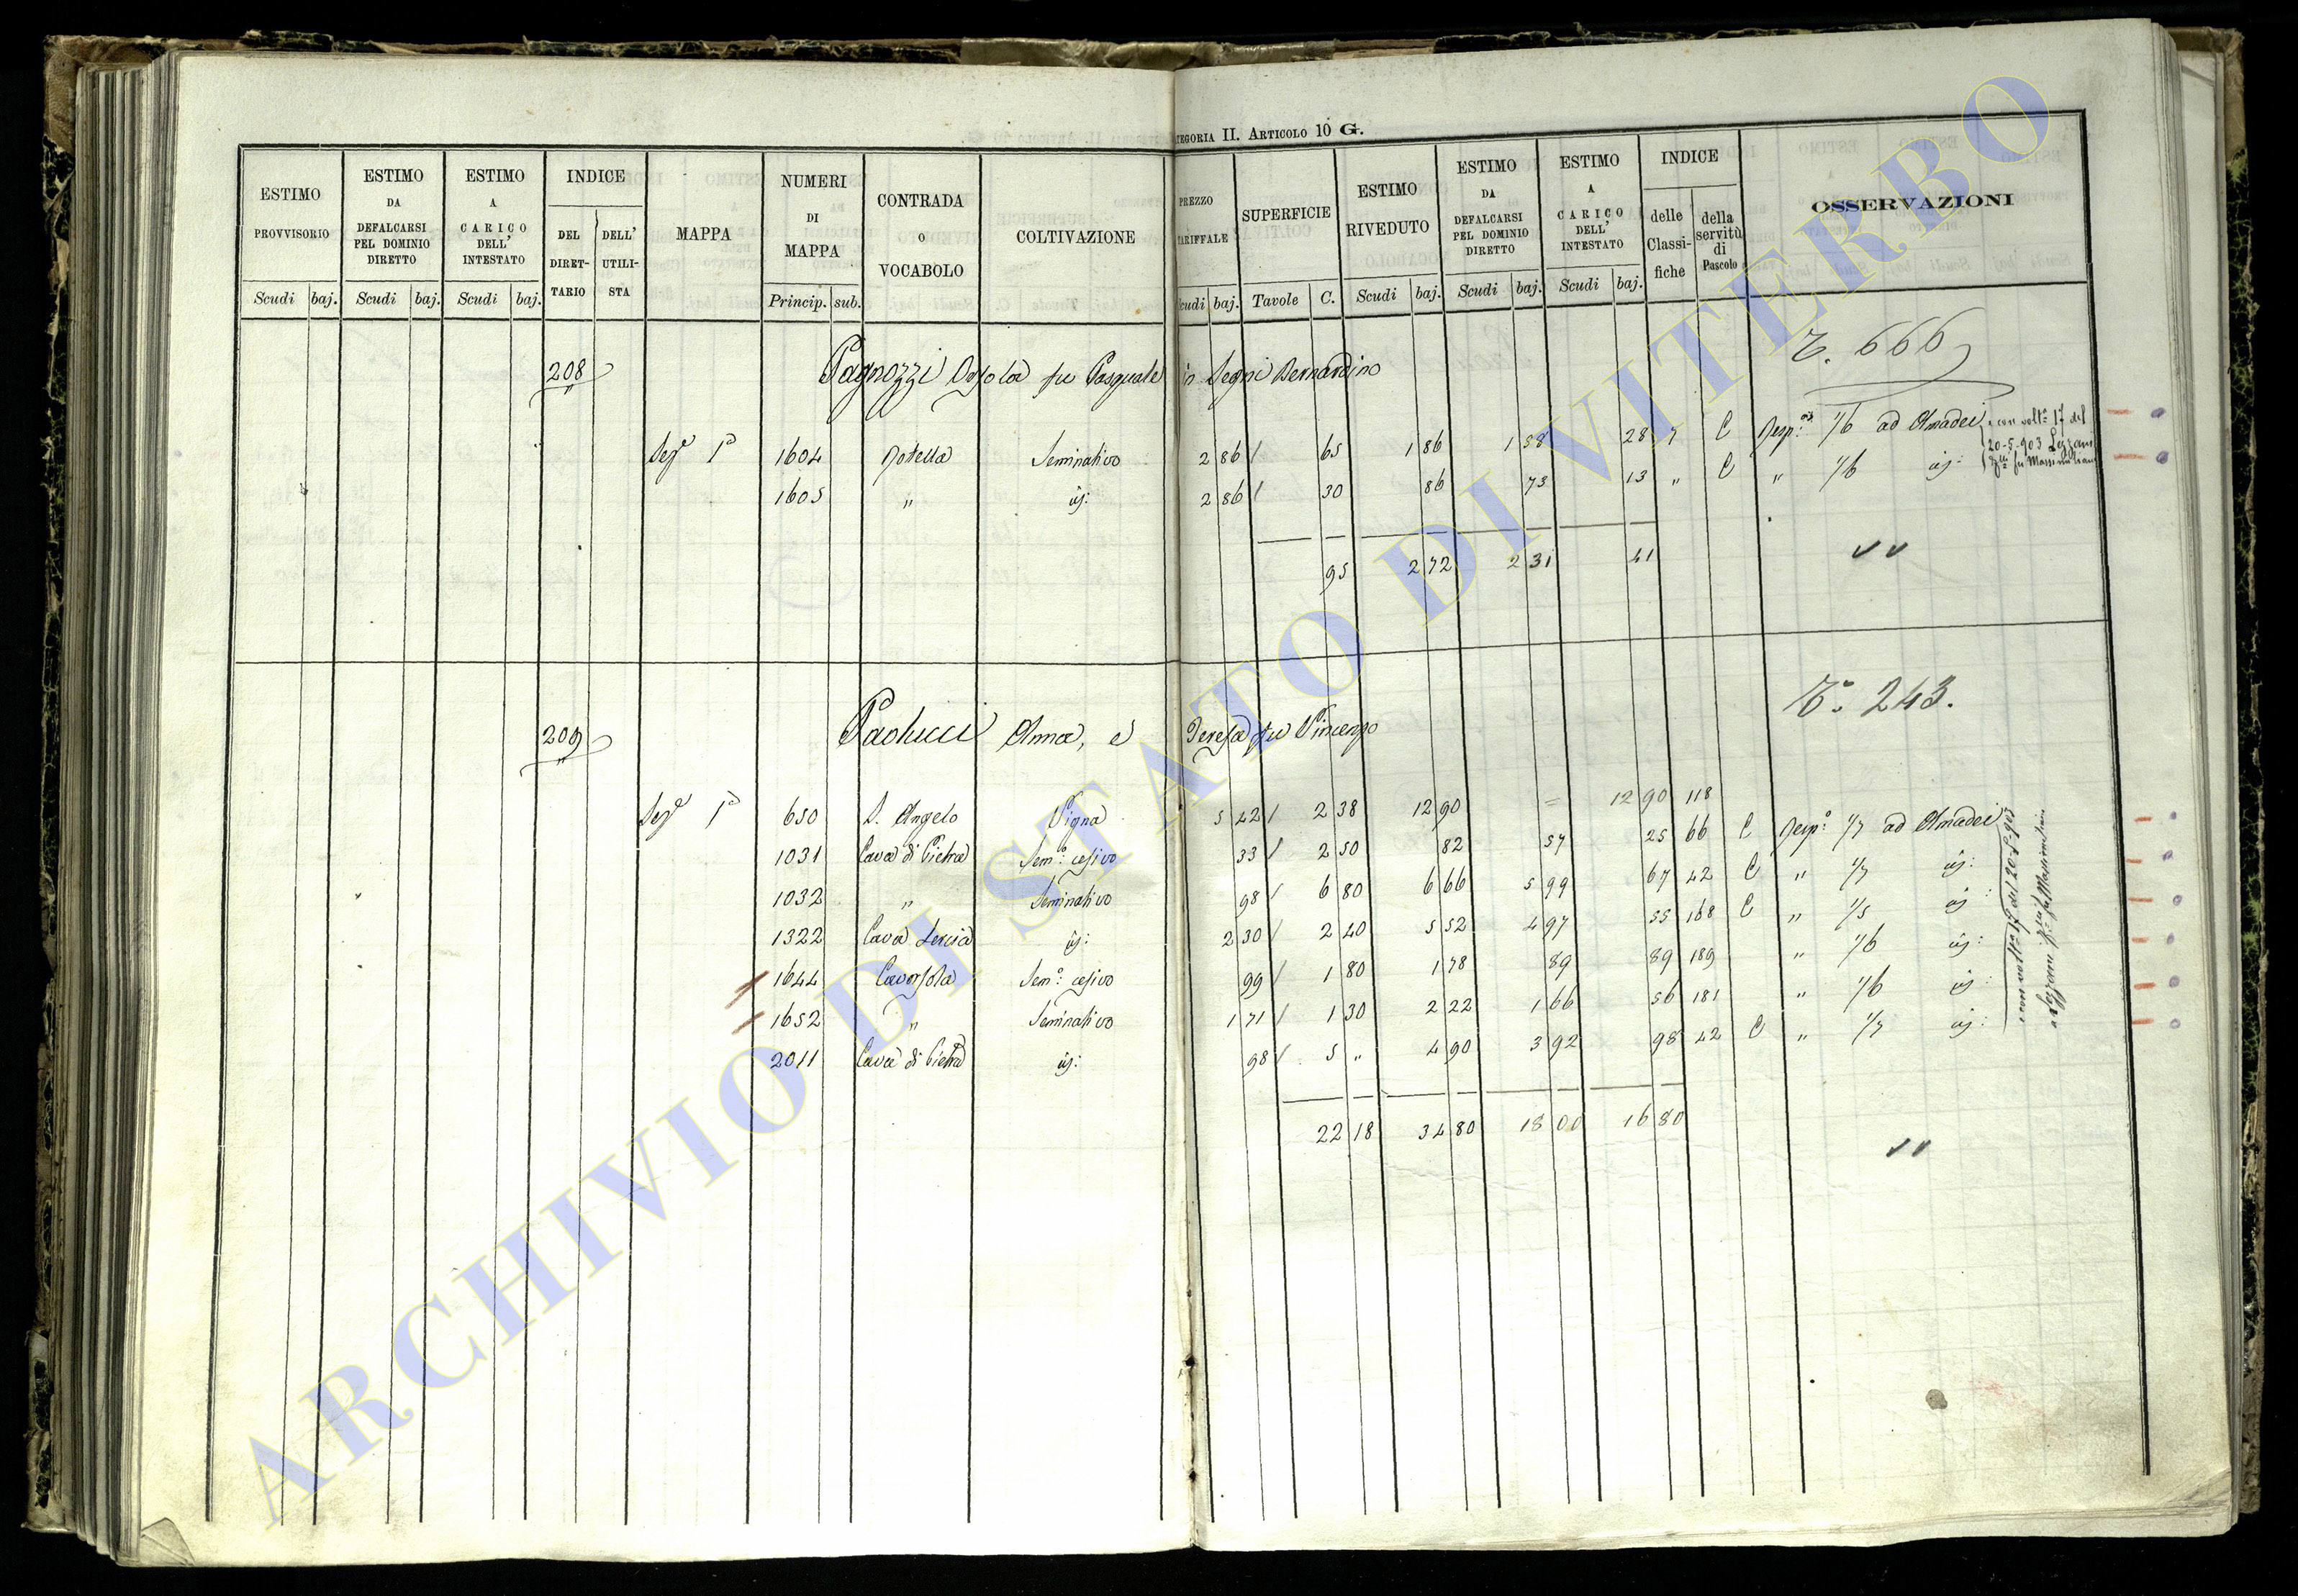 TEGORIA II. ARTICOLO 10 G.
ESTIMO PROVVISORIO Scudi baj.
ESTIMO DA DEFALCARSI PEL DOMINIO DIRETTO Scudi baj.
ESTIMO A CARICO DELL' INTESTATO Scudi baj.
INDICE DEL DIRET-TARIO DELL' UTILI-STA
MAPPA
NUMERI DI MAPPA Princip. sub.
CONTRADA O VOCABOLO
COLTIVAZIONE
PREZZO TARIFFALE Scudi baj.
SUPERFICIE Tavole C.
ESTIMO RIVEDUTO Scudi baj.
ESTIMO DA DEFALCARSI PEL DOMINIO DIRETTO Scudi baj.
ESTIMO A CARICO DELL' INTESTATO Scudi baj.
INDICE delle Classi-fiche della servitù di Pascolo
OSSERVAZIONI
T. 666
208 Pagnozzi Orsola fu Pasquale in Segni Bernardino
Sezᵉ 1ª 1604 Rotella Seminativo 2 86 / 65 1 86 1 58 28 7 C Resp.ᵃ 1/6 ad Amadei
1605 " id: 2 86 / 30 86 73 13 " C " 1/6 id:
e con voltᵃ 17 del
20-5-903
fu Massimiliano
95 2 72 2 31 41
Tᵒ 243.
209 Paolucci Anna, e Teresa fu Vincenzo
Sezᵉ 1ª 650 S. Angelo Vigna 5 42 / 2 38 12 90 = 12 90 118
1031 Cava di Pietra Semᵒ cesivo 33 / 2 50 82 57 25 66 C Respᵃ 1/7 ad Amadei
1032 " Seminativo 98 / 6 80 6 66 5 99 67 42 C " 1/7 id:
1322 Cava Lercia id: 2 30 / 2 40 5 52 4 97 55 168 C " 1/5 id:
1644 Cavorsola Semᵒ cesivo 99 / 1 80 1 78 89 89 189 " 1/6 id:
1652 " Seminativo 1 71 / 1 30 2 22 1 66 56 181 " 1/6 id:
2011 Cava di Pietra id: 98 / 5 " 4 90 3 92 98 42 C " 1/7 id:
22 18 34 80 18 00 16 80
ARCHIVIO DI STATO DI VITERBO